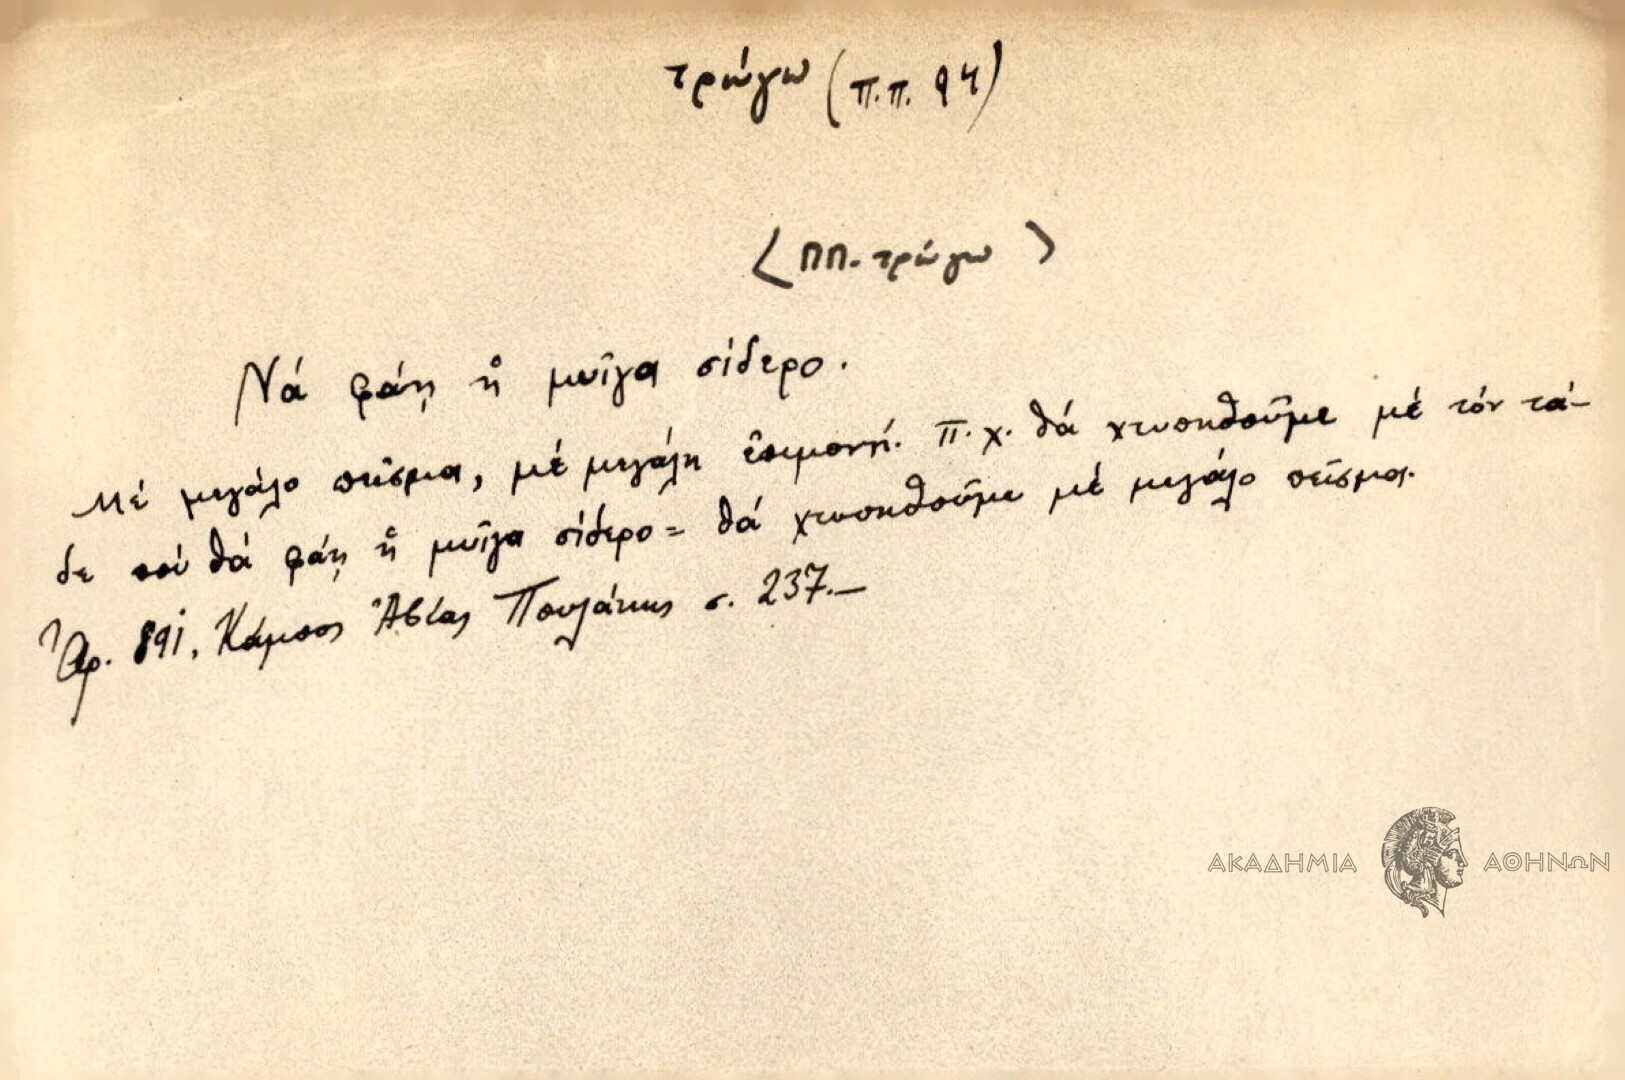 τρώγω (π.π. 94)
<ΠΠ. τρώγω>
Νά φάῃ ἡ μυῖγα σίδερο.
Μέ μεγάλο πεῖσμα, μέ μεγάλη ἐπιμονή. π.χ. θά χτυπηθοῦμε μέ τόν τά-
δε πού θά φάῃ ἡ μυῖγα σίδερο = θά χτυπηθοῦμε μέ μεγάλο πεῖσμα.
Ἀρ. 891, Κάμπος Ἀβίας Πουλάκης σ. 237.—
ΑΚΑΔΗΜΙΑ ΑΘΗΝΩΝ